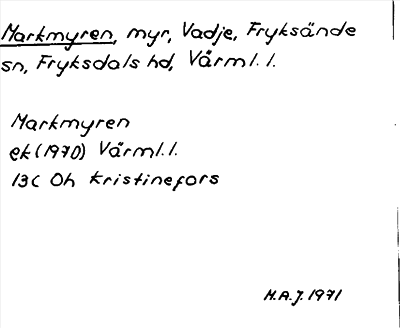 Markmyren, myr, Vadje, Fryksände
sn, Fryksdals hd, Värml. l.
Markmyren
ek (1970) Värml. l.
13C Oh Kristinefors
H.A.J. 1971